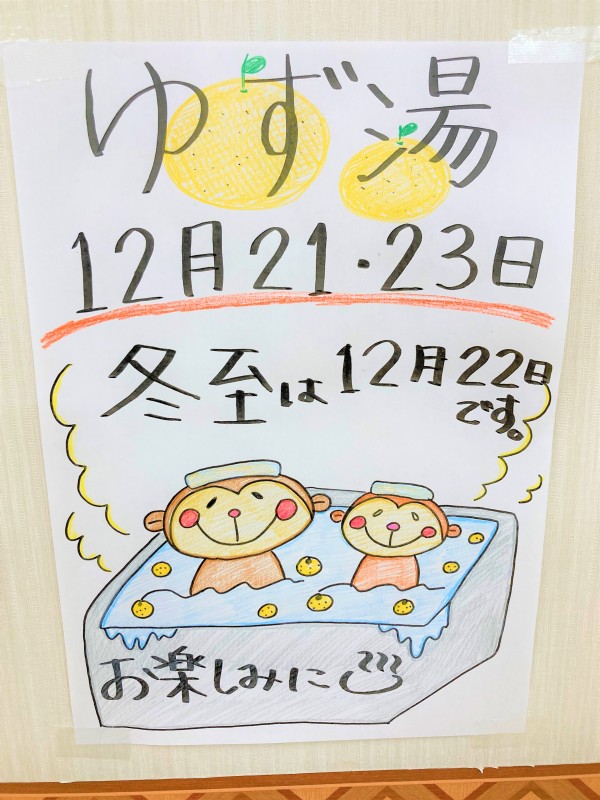 ゆず湯
12月21・23日
冬至は12月22日
です。
お楽しみに